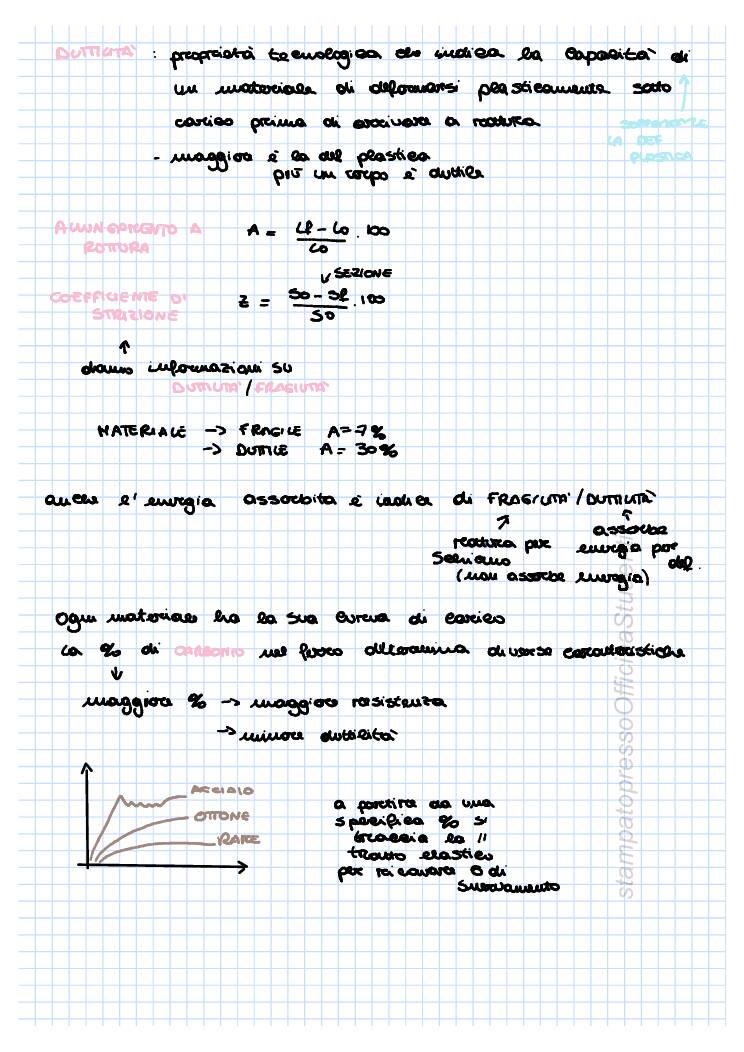 DUTTILITÀ : proprietà tecnologica che indica la capacità di
un materiale di deformarsi plasticamente sotto
carico prima di arrivare a rottura
SOPPORTARE
LA DEF
PLASTICA
- maggiore è la def plastica
più un corpo è duttile
ALLUNGAMENTO A
ROTTURA
A = Lf - Lo / Lo . 100
SEZIONE
COEFFICIENTE DI
STRIZIONE
Z = So - Sf / So . 100
↑
danno informazioni su
DUTTILITÀ / FRAGILITÀ
MATERIALE -> FRAGILE A = 7%
-> DUTTILE A = 30%
anche l'energia assorbita è indice di FRAGILITÀ / DUTTILITÀ
rottura per
schianto
(non assorbe energia)
assorbe
energia per
def.
Ogni materiale ha la sua curva di carico
La % di CARBONIO nel ferro determina diverse caratteristiche
↓
maggiore % -> maggiore resistenza
-> minore duttilità
ACCIAIO
OTTONE
RAME
a partire da una
specifica % si
traccia la //
tratto elastico
per ricavare σ di
snervamento
stampatopressoOfficinaStudenti